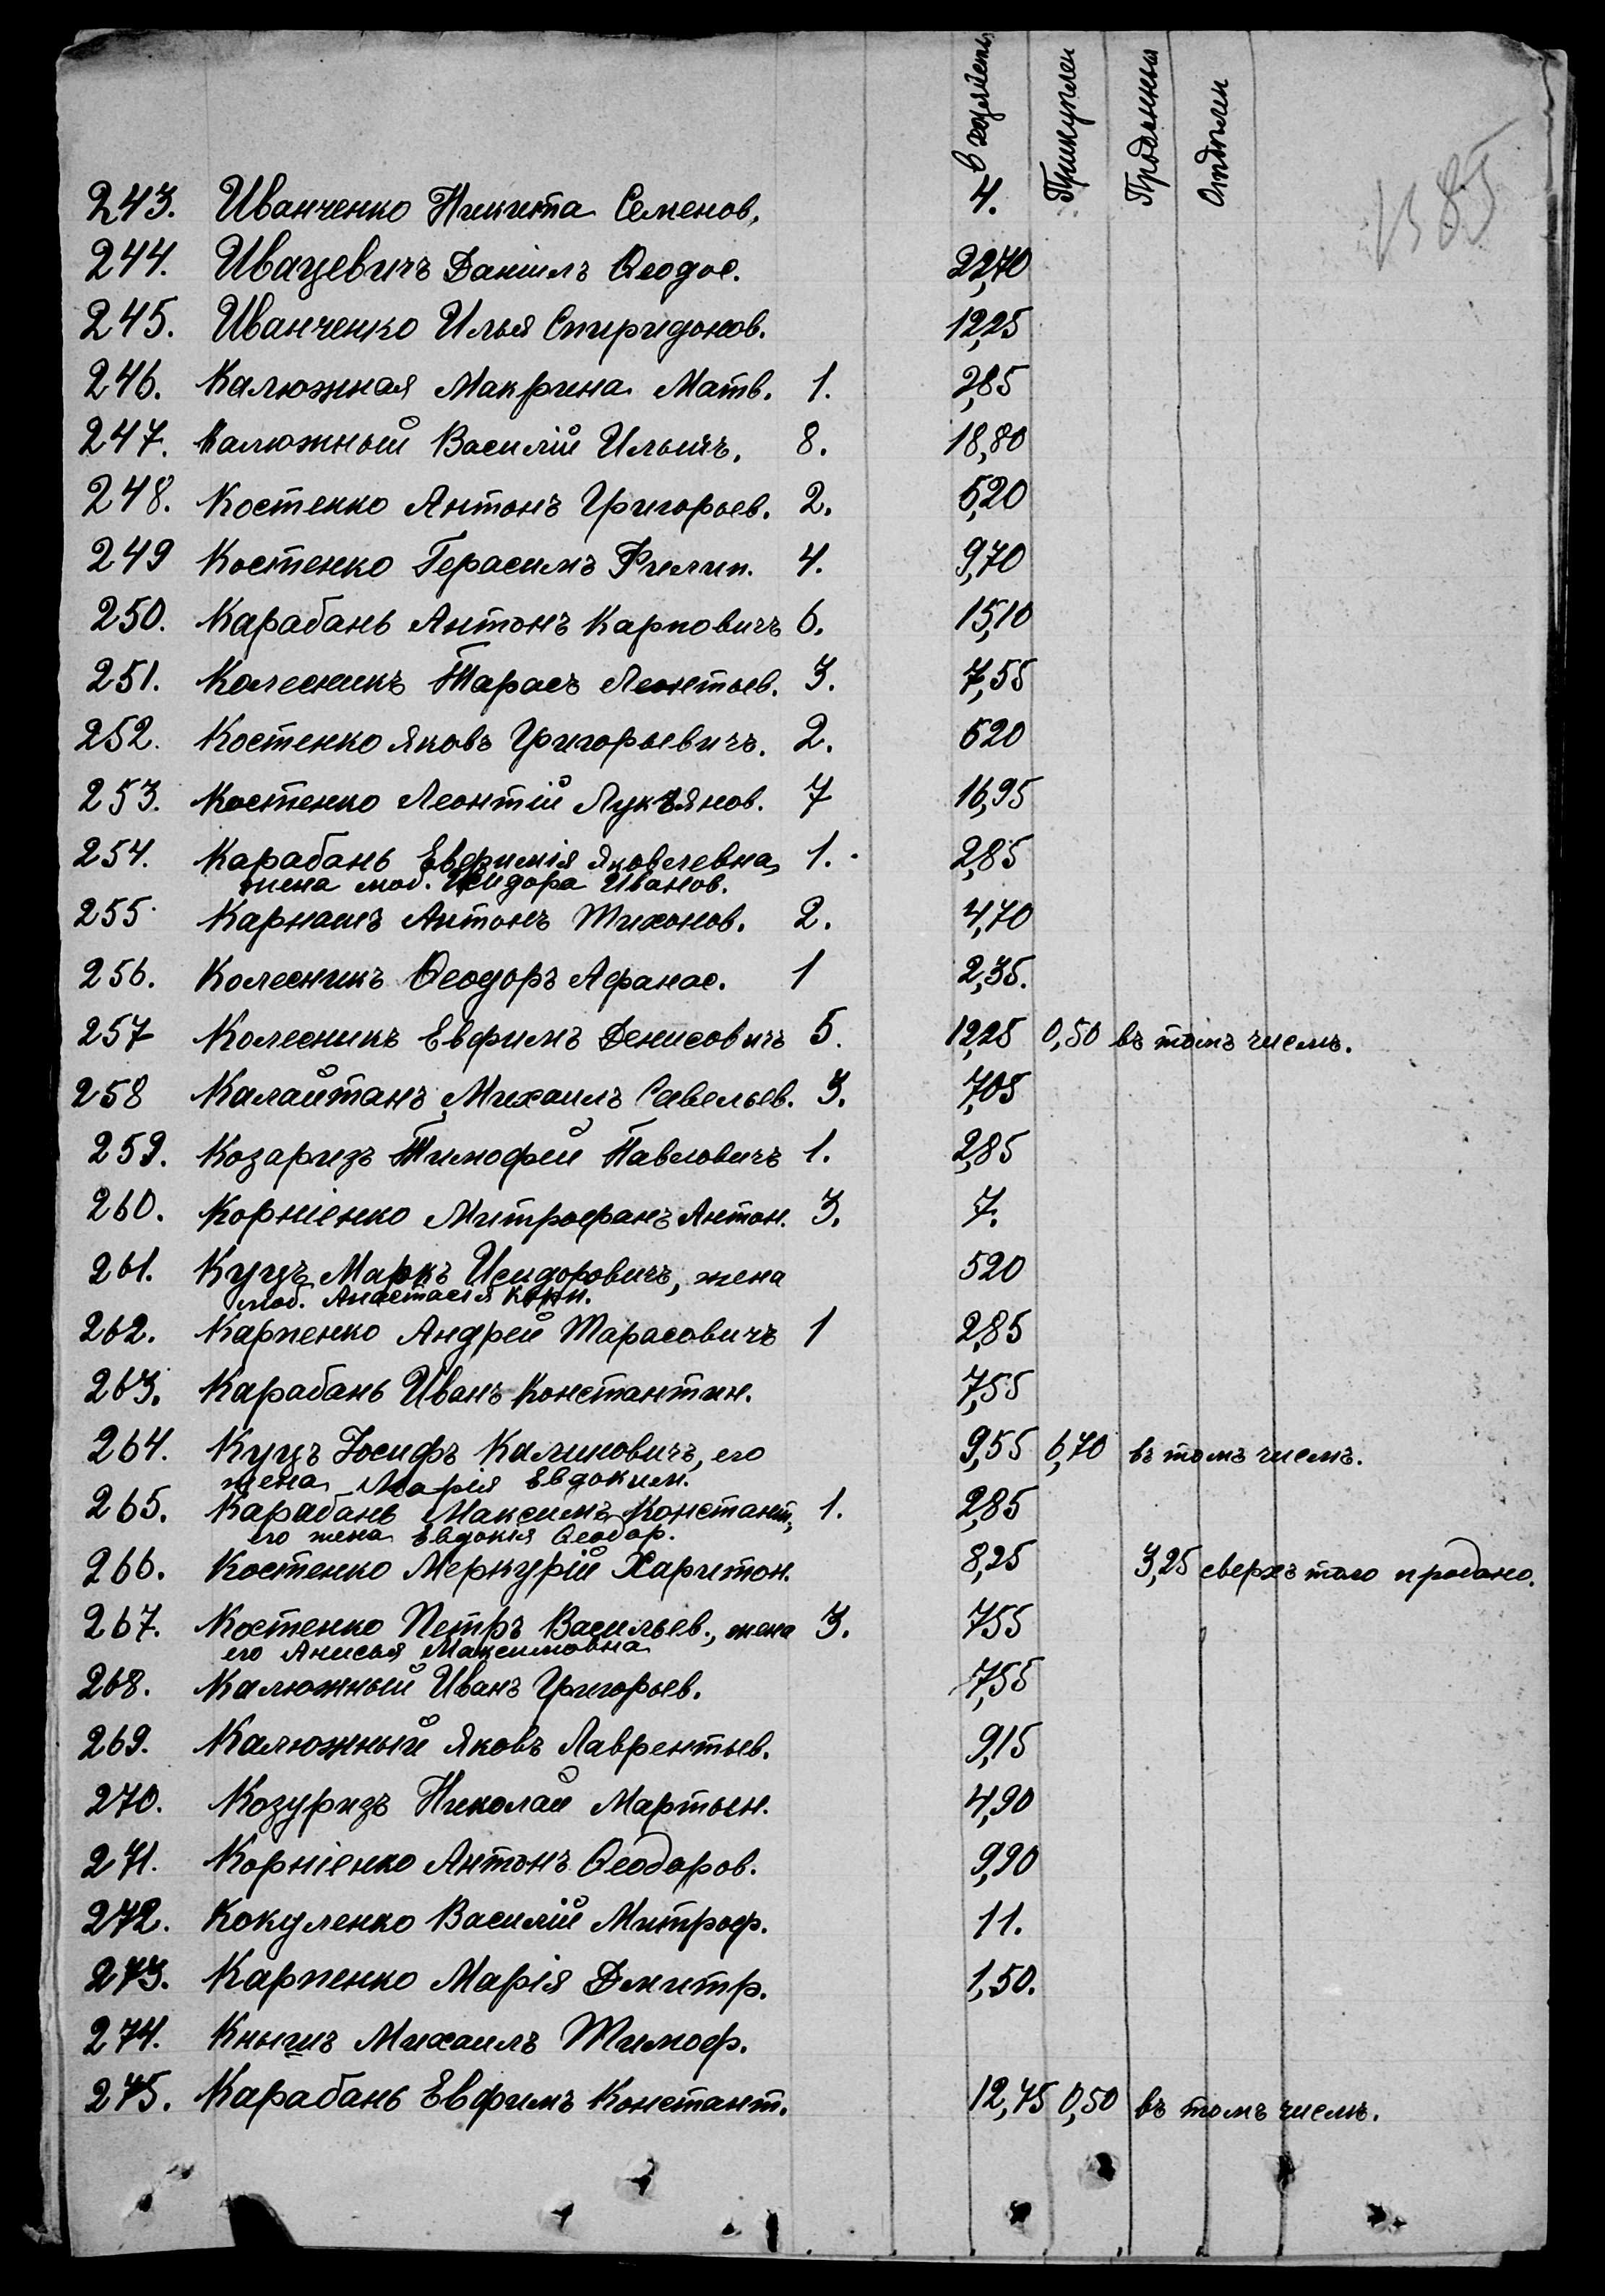 Прикуплен
Проданныя
243. Иванченко Никита Семенов. 4.
244. Ивацевичъ Данiилъ Ѳеодос. 22,70
245. Иванченко Илья Спиридонов. 12,25
246. Калюжная Макрина Матв. 1. 2,85
247. Калюжный Василiй Ильичъ. 8. 18,80
248. Костенко Антонъ Григорьев. 2. 5,20
249 Костенко Герасимъ Филип. 4. 9,70
250. Карабань Антонъ Карповичъ 6. 15,10
251. Колесникъ Тарасъ Леонтьев. 3. 7,55
252. Костенко Яковъ Григорьевичъ. 2. 520
253. Костенко Леонтiй Лукъянов. 7 16,95
254. Карабань Евфимiя Яковлевна, 1. 2,85
жена моб. Исидора Иванов.
255 Карнашъ Антонъ Тихонов. 2. 4,70
256. Колесникъ Ѳеодоръ Афанас. 1 2,35.
257 Колесникъ Евфимъ Денисовичъ 5. 12,25 0,50 въ томъ числѣ.
258 Калайтанъ Михаилъ Савельев. 3. 7,05
259. Козаризъ Тимофей Павловичъ 1. 2,85
260. Корнiенко Митрофанъ Антон. 3. 7.
261. Куцъ Маркъ Исидоровичъ, жена 520
моб. Анастасiя
262. Карпенко Андрей Тарасовичъ 1 2,85
263. Карабань Иванъ Константин. 7,55
264. Куцъ Iосифъ Калиновичъ, его 9,55 6,70 въ томъ числѣ.
жена Марiя Евдоким.
265. Карабань Максимъ Констант., 1. 2,85
его жена Евдокiя Ѳеодор.
266. Костенко Меркурiй Харитон. 8,25 3,25 сверхъ того продано.
267. Костенко Петръ Васильев., жена 3. 755
его Анисья Максимовна
268. Калюжный Иванъ Григорьев. 7,55
269. Калюжный Яковъ Лаврентьев. 9,15
270. Козуризъ Николай Мартын. 4,90
271. Корнiенко Антонъ Ѳеодоров. 9,90
272. Кокуленко Василiй Митроф. 11.
273. Карпенко Марiя Дмитр. 1,50.
274. Кнышъ Михаилъ Тимоф.
275. Карабань Евфимъ Констант. 12,75 0,50 въ томъ числѣ.